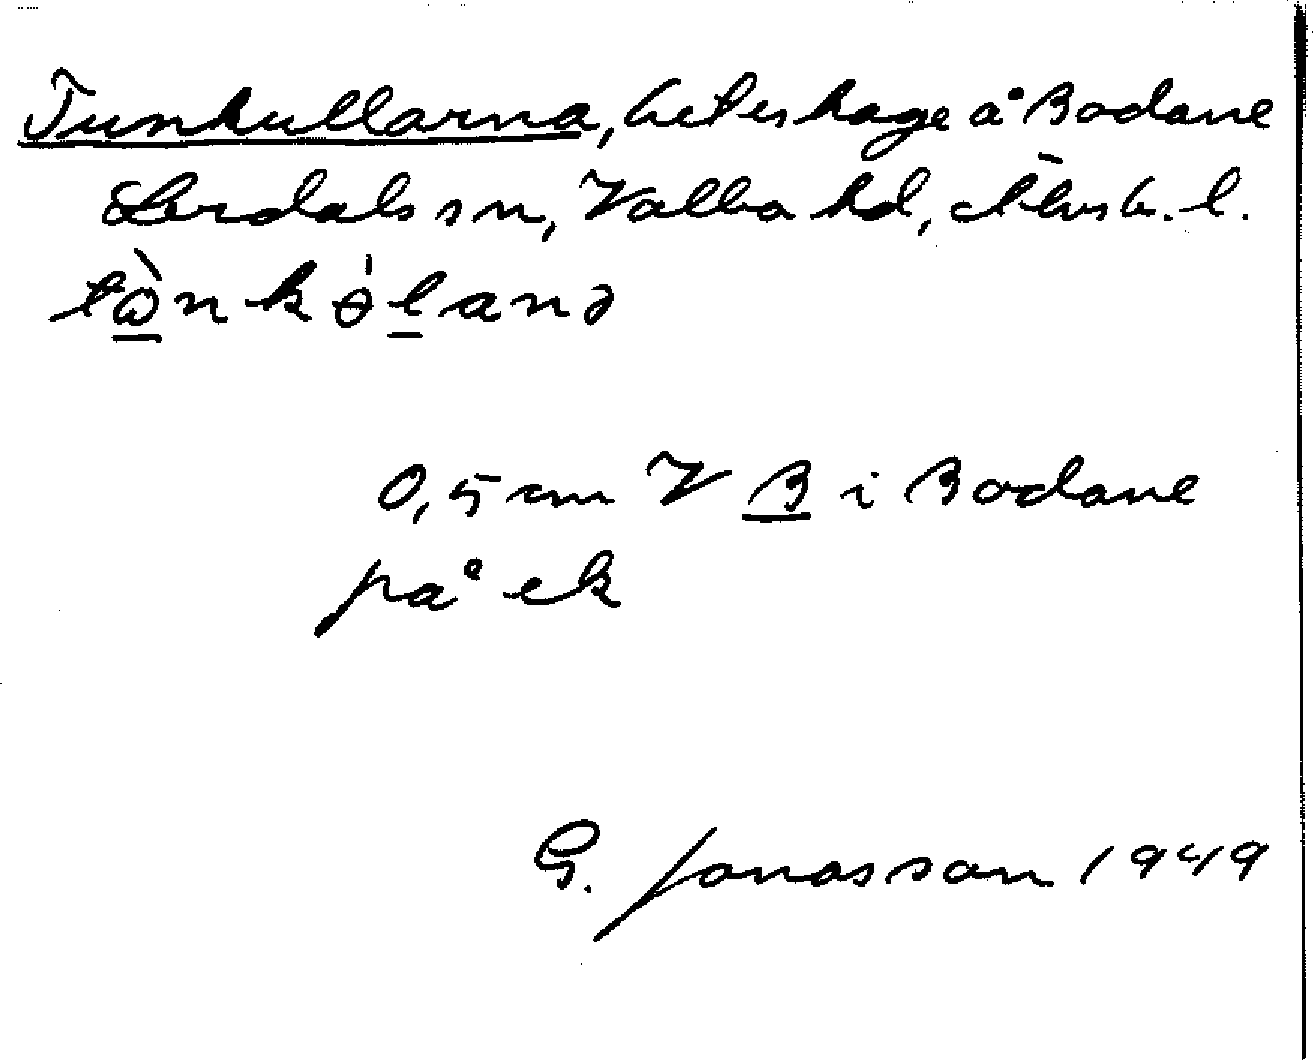 Tunkullarna, beteshage å Bodane
Lerdals sn, Valbo hd, Älvsb. l.
tὼnkɵ́lanə
0,5 cm V B i Bodane
på ek
G. Jonasson 1949